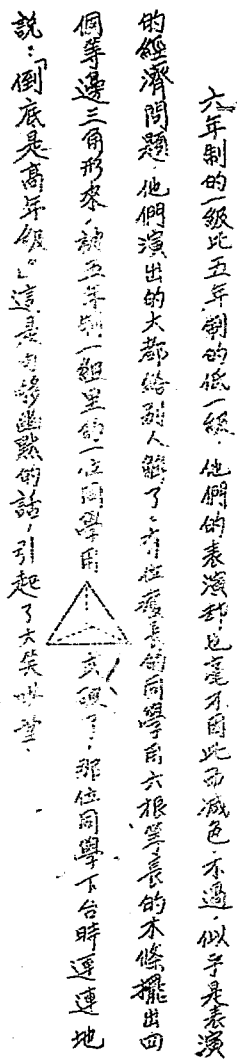 六年制的一級比五年制的低一級，他們的表演却也毫不因此而減色。不過，似乎是表演
的經濟問題，他們演出的大都給別人解了。有位瘦長的同學用六根等長的木條擺出四
個等邊三角形來，被五年制一組里的一位同學用 式破了，那位同學下台時連連地
說：「倒底是高年級。」這是句够幽默的話，引起了大笑